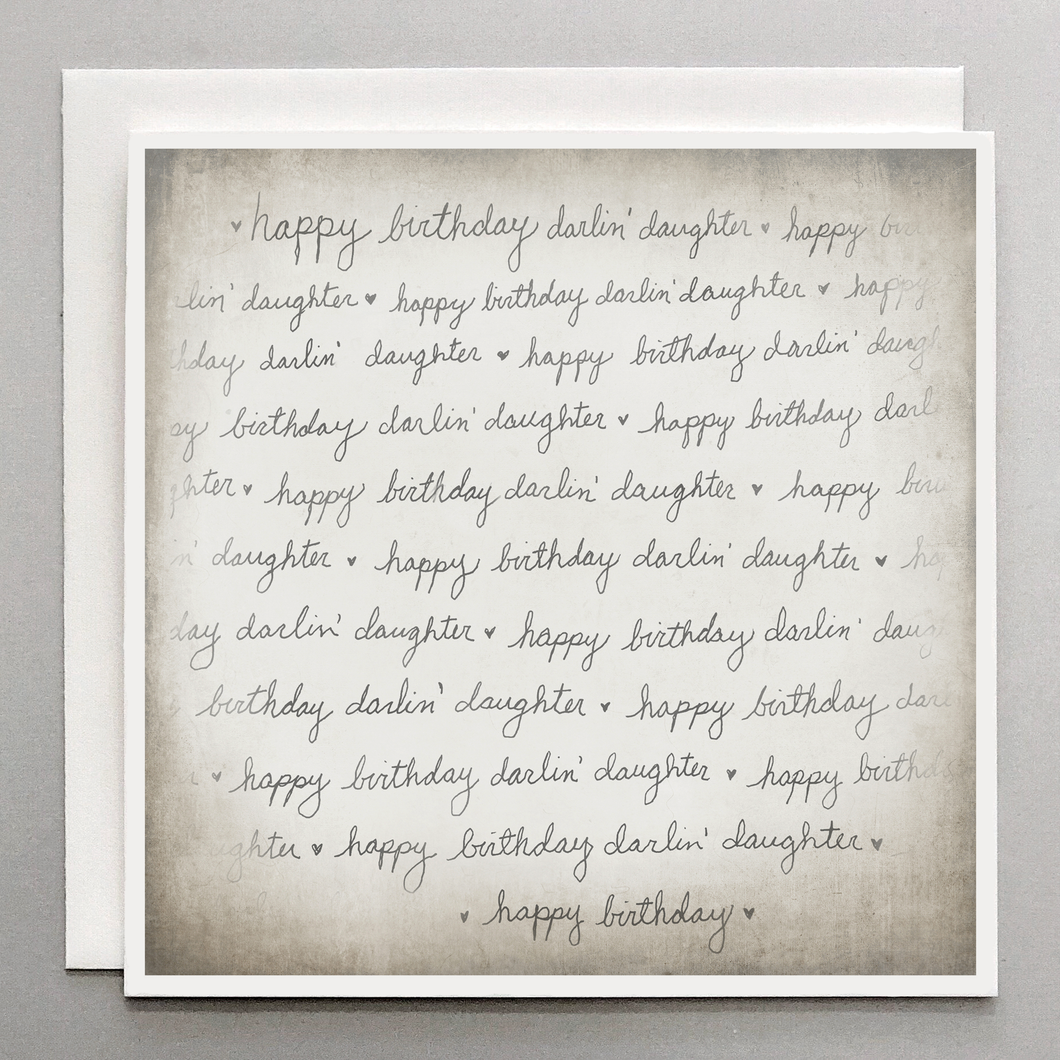 ♥ happy birthday darlin' daughter ♥ happy bir
lin' daughter ♥ happy birthday darlin' daughter ♥ happy
hday darlin' daughter ♥ happy birthday darlin' daugh
py birthday darlin' daughter ♥ happy birthday darl
ghter ♥ happy birthday darlin' daughter ♥ happy bir
n' daughter ♥ happy birthday darlin' daughter ♥ hap
day darlin' daughter ♥ happy birthday darlin' daug
birthday darlin' daughter ♥ happy birthday darl
r ♥ happy birthday darlin' daughter ♥ happy birthd
ghter ♥ happy birthday darlin' daughter ♥
♥ happy birthday ♥